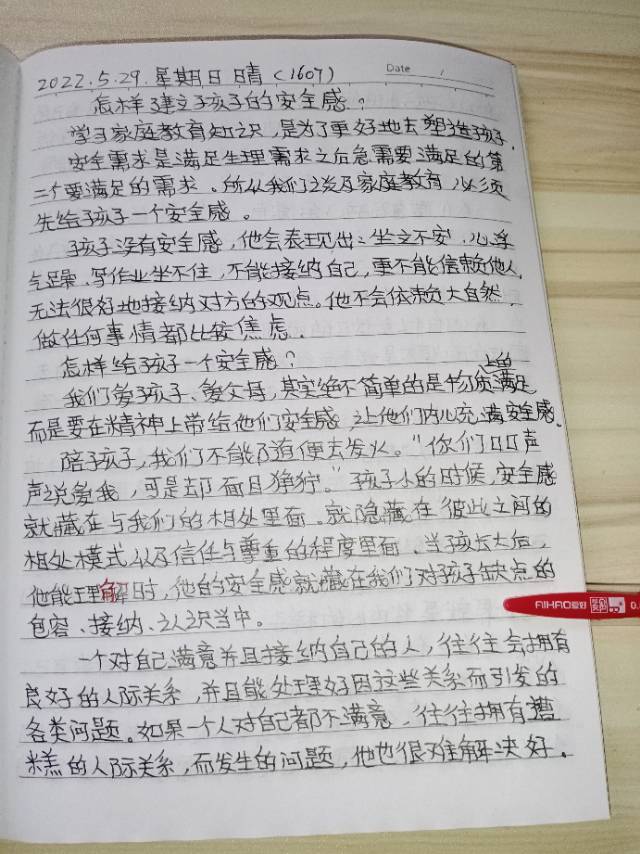 Date
2022.5.29.星期日 晴(1607)
怎样建立孩子的安全感?
学习家庭教育知识,是为了更好地去塑造孩子.
安全需求是满足生理需求之后急需要满足的第
二个要满足的需求。所以我们谈及家庭教育,必须
先给孩子一个安全感。
孩子没有安全感,他会表现出:坐立不安,心浮
气躁,写作业坐不住,不能接纳自己,更不能信赖他人,
无法很好地接纳对方的观点。他不会依赖大自然,
做任何事情都比较焦虑.
怎样给孩子一个安全感?
我们爱孩子、爱父母,其实绝不简单的是物质上的满足
而是要在精神上带给他们安全感,让他们内心充满安全感.
陪孩子,我们不能随便去发火。"你们口口声
声说爱我,可是却面目狰狞。"孩子小的时候,安全感
就藏在与我们的相处里面。就隐藏在彼此之间的
相处模式以及信任与尊重的程度里面。当孩长大后,
他能理解时,他的安全感就藏在我们对孩子缺点的
包容、接纳、认识当中。
一个对自己满意并且接纳自己的人,往往会拥有
良好的人际关系,并且能处理好因这些关系而引发的
各类问题。如果一个人对自己都不满意,往往拥有遭
糕的人际关系,而发生的问题,他也很难解决好.
AIHAO爱好